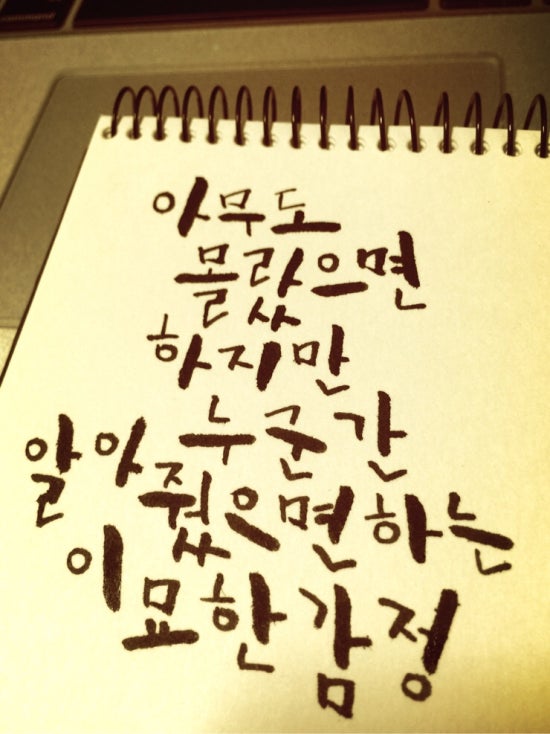 아무도
몰랐으면
하지만
누군간
알아줬으면 하는
이 묘한 감정